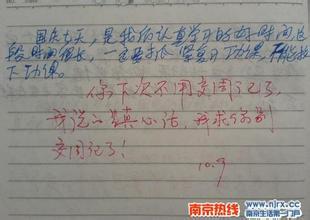 国庆七天，是我们认真学习的好时间这
段时间很长，一定要抓紧复习功课，不能拉
下功课。
你下次不用交周记了，
我说的是真心话，我求你别
交周记了！
10.9
南京热线 www.njrx.cc
南京生活第一门户